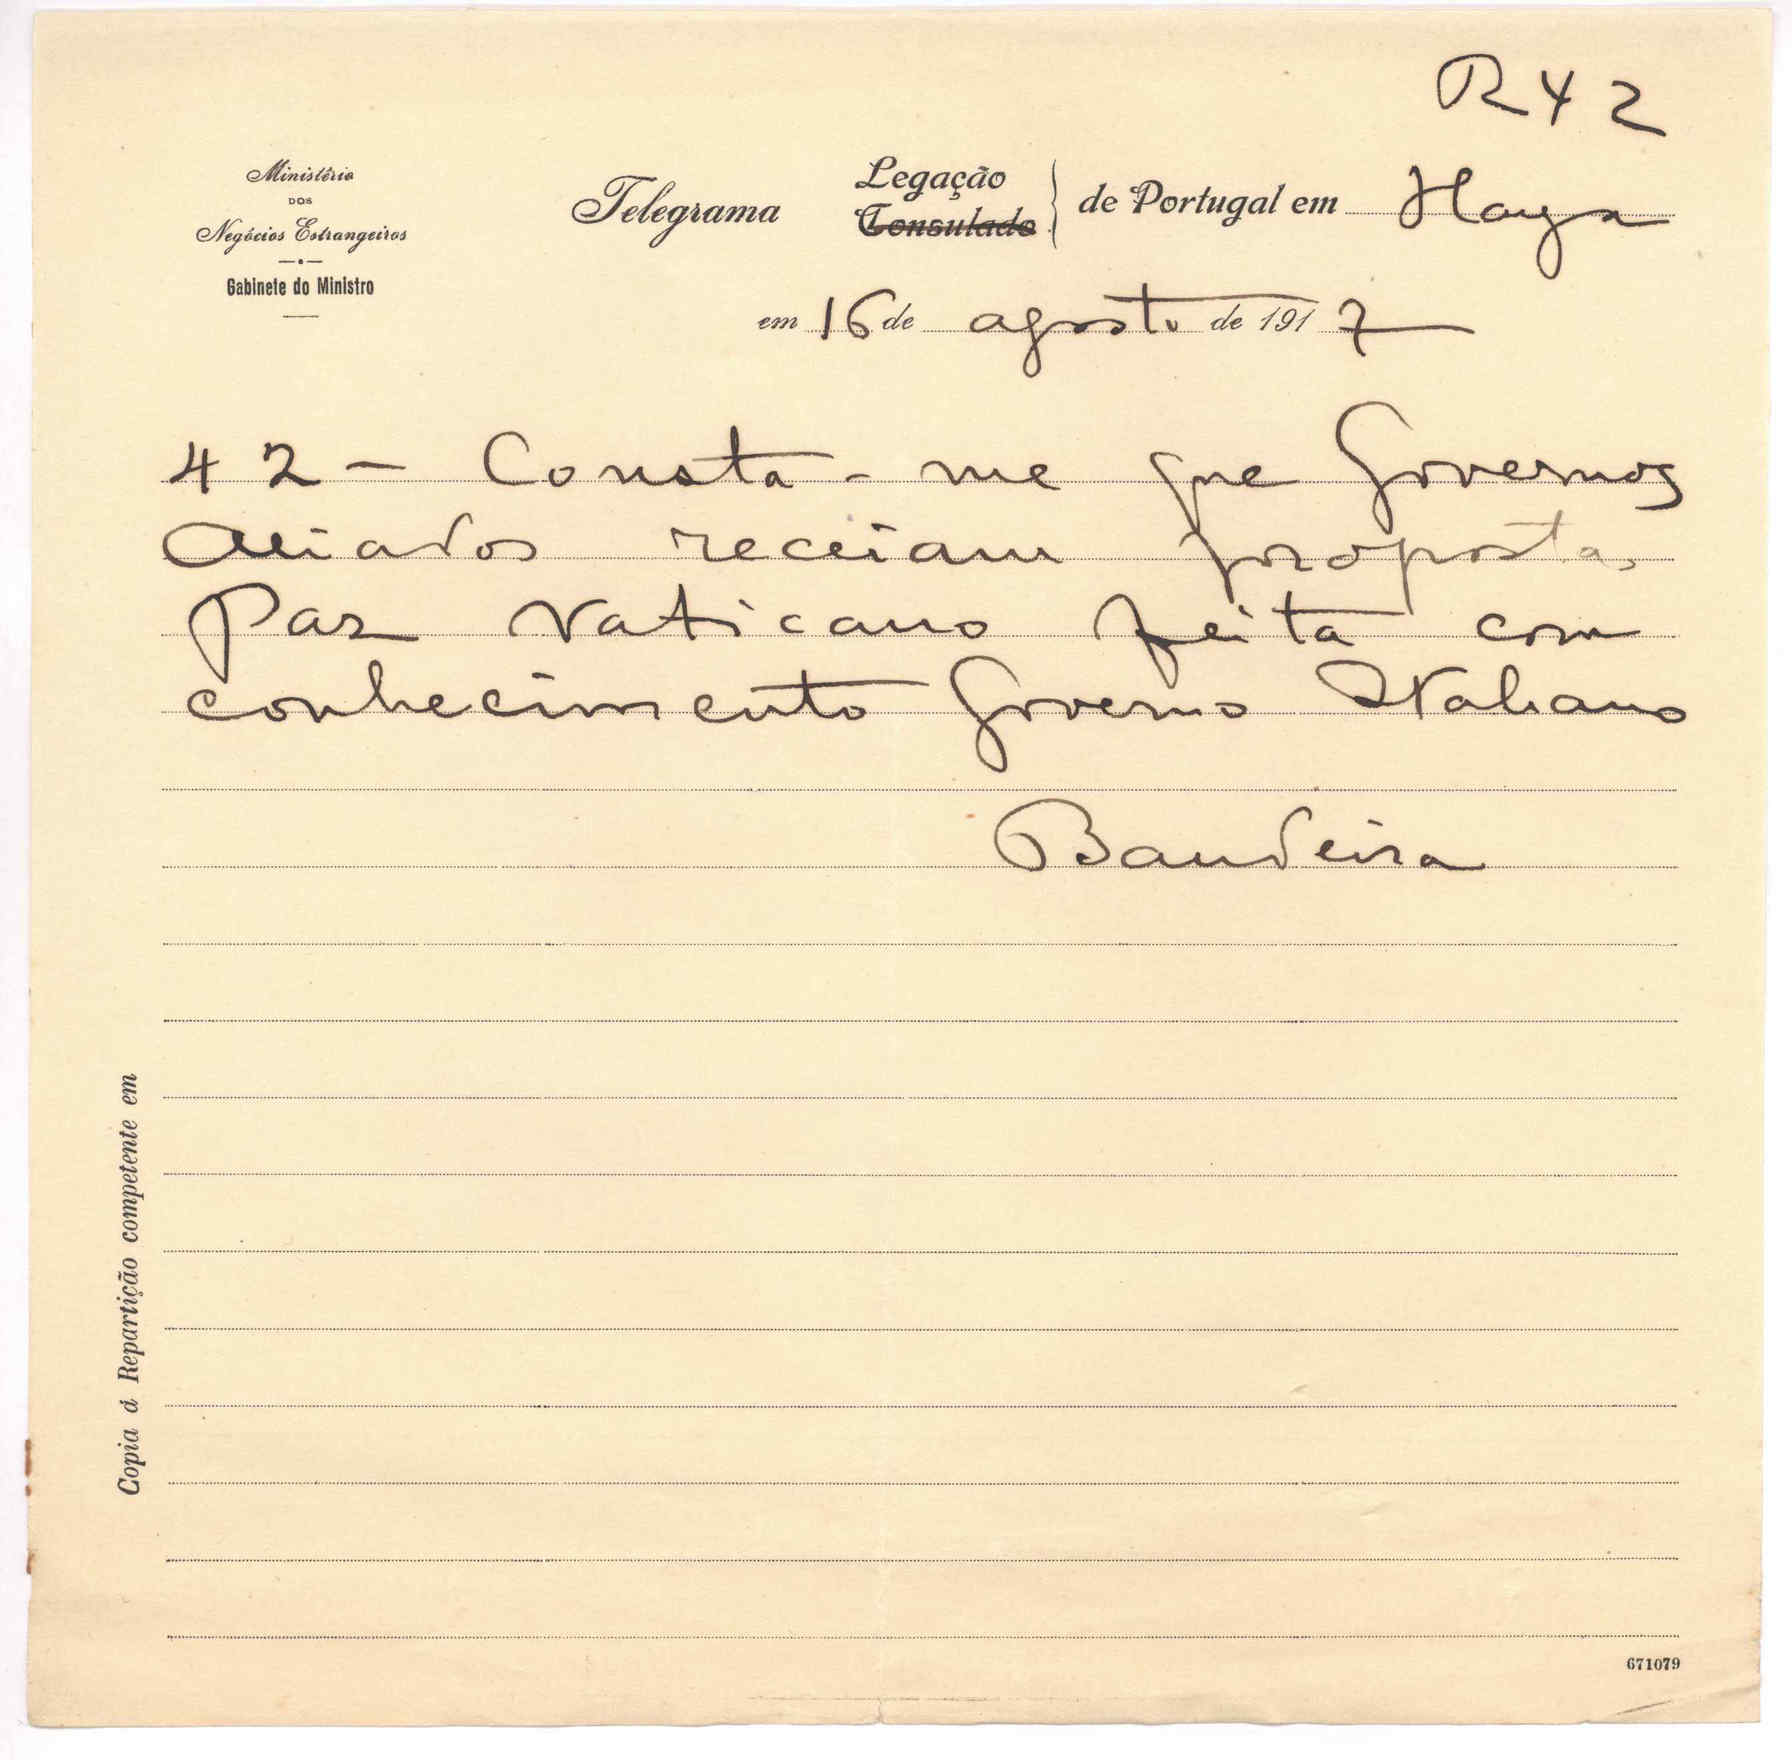 R42
Ministério
DOS
Negócios Estrangeiros
Gabinete do Ministro
Telegrama
Legação
Consulado
de Portugal em Haya
em 16 de agosto de 1917
42 - Consta-me que Governos
Aliados receiam proposta
Paz Vaticano feita com
conhecimento Governo Italiano
Bandeira
Copia á Repartição competente em
671079